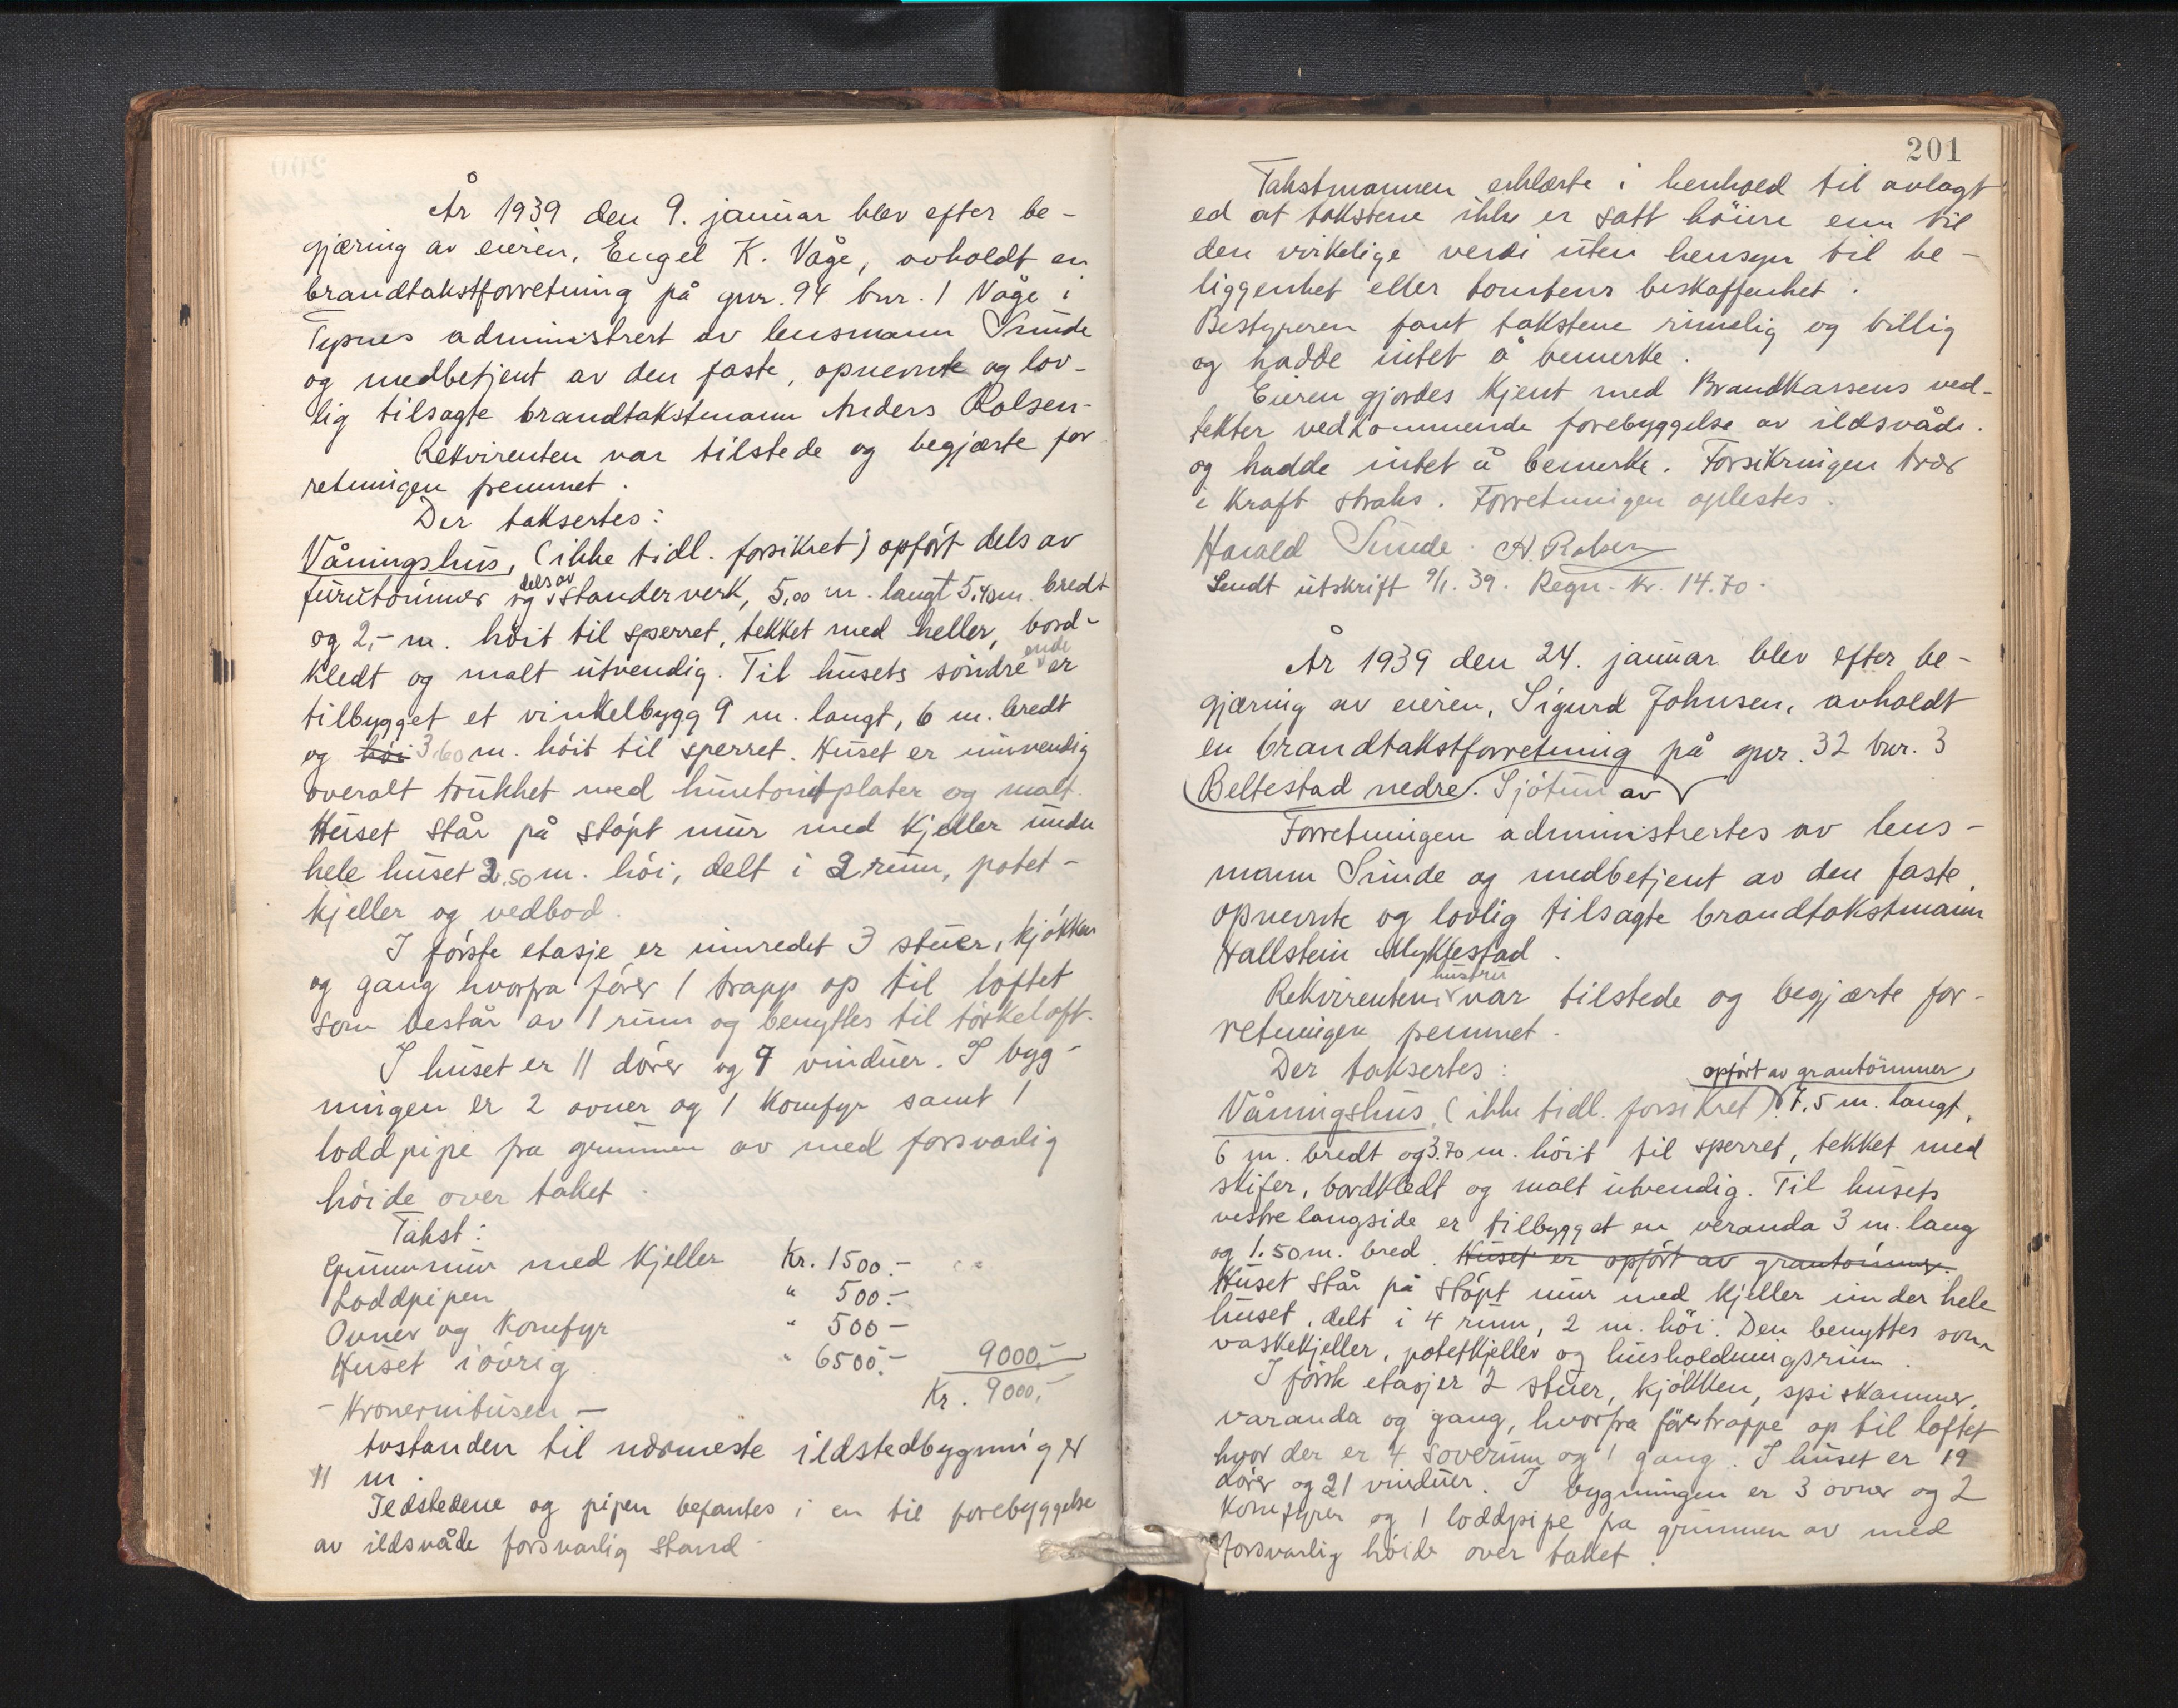 År 1939 den 9. januar blev efter be-
gjæring av eieren, Engel K. Våge, avholdt en
brandtakstforretning på gnr. 94 bnr. 1 Våge i
Tysnes administrert av lensmann Sunde
og medbetjent av den faste, opnevnte og lov-
lig tilsagte brandtakstmann Anders Rolsen-
Rekvirenten var tilstede og begjærte for
retningen fremmet.
Der taksertes:
Våningshus, (ikke tidl. forsikret) opført dels av
furutømmer og dels av standerverk, 5,00 m. langt 5,40 m. bredt
og 2,- m. höit til sperret, tekket med heller, bord-
kledt og malt utvendig. Til husets söndre ende er
tilbygget et vinkelbygg 9 m. langt, 6 m. bredt
og höi 3,60 m. höit til sperret. Huset er innvendig
overalt trukket med huntonitplater og malt.
Huset står på støpt mur med kjeller under
hele huset 2,50 m. höi, delt i 2 rum, potet-
kjeller og vedbod.
I første etasje er innredet 3 stuer, kjøkken
og gang hvorfra fører 1 trapp op til loftet
som består av 1 rum og benyttes til törkeloft.
I huset er 11 dører og 9 vinduer. I byg-
ningen er 2 ovner og 1 komfyr samt 1
loddpipe fra grunnen av med forsvarlig
höide over taket.
Takst:
Grunnmur med kjeller Kr. 1500.-
Loddpipen " 500.-
Ovner og komfyr " 500-
Huset iövrig " 6500.- 9000,-
Kr. 9000,-
- Kronernitusen -
Avstanden til nærmeste ildstedbygning er
11 m.
Ildstedene og pipen befantes i en til forebyggelse
av ildsvåde forsvarlig stand.
201
Takstmannen erklærte i henhold til avlagt
ed at takstene ikke er satt höiere enn til
den virkelige verdi uten hensyn til be-
liggenhet eller tomtens beskaffenhet.
Bestyreren fant takstene rimelig og billig
og hadde intet å bemerke.
Eieren gjordes kjent med Brandkassens ved-
tekter vedkommende forebyggelse av ildsvåde.
og hadde intet å bemerke. Forsikringen trær
i kraft straks. Forretningen oplestes.
Harald Sunde. A. Rolsen
Sendt utskrift 9/1. 39. Regn. kr. 14.70.
År 1939 den 24. januar blev efter be-
gjæring av eieren, Sigurd Johnsen, avholdt
en brandtakstforretning på gnr. 32 bnr. 3
Beltestad nedre. Sjötun av
Forretningen administrertes av lens-
mann Sunde og medbetjent av den faste,
opnevnte og lovlig tilsagte brandtakstmann
Hallstein Myklestad.
Rekvirentens hustru var tilstede og begjærte for-
retningen fremmet.
Der taksertes:
Våningshus, (ikke tidl. forsikret) opført av grantömmer, 7,5 m. langt,
6 m. bredt og 3.70 m. höit til sperret, tekket med
skifer, bordkledt og malt utvendig. Til husets
vestre langside er tilbygget en veranda 3 m. lang
og 1.50 m. bred. Huset er opført av grantömmer.
Huset står på støpt mur med kjeller under hele
huset, delt i 4 rum, 2 m. höi. Den benyttes som
vaskekjeller, potetkjeller og husholdningsrum.
I første etasje er 2 stuer, kjökken, spiskammer,
varanda og gang, hvorfra förer trappe op til loftet
hvor der er 4 soverum og 1 gang. I huset er 19
dører og 21 vinduer. I bygningen er 3 ovner og 2
komfyrer og 1 loddpipe fra grunnen av med
forsvarlig höide over taket.